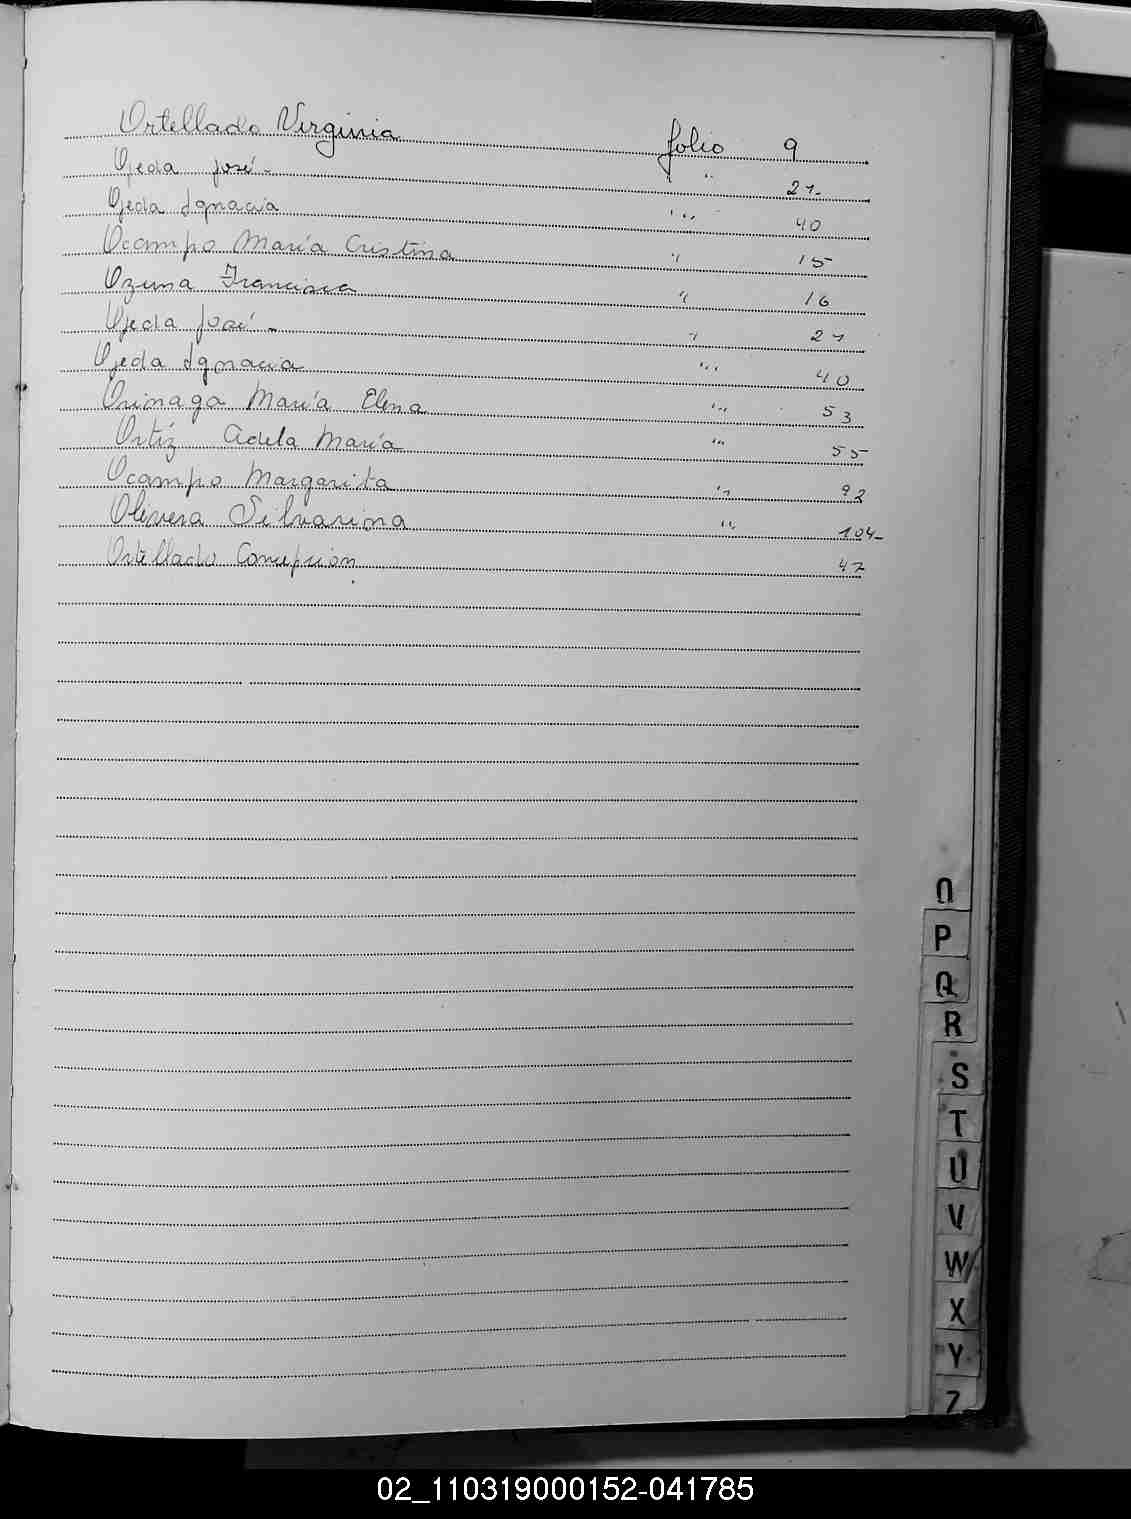 Ortellado Virginia folio 9
Ojeda José - " 21-
Ojeda Ignacia " 40
Ocampo María Cristina " 15
Ozuna Francisca " 16
Ojeda José - " 21
Ojeda Ignacia " 40
María Elena " 53
Ortíz Adela María " 55
Ocampo Margarita " 92
Olivera Silvarina " 104-
Ortellado Concepción 47
O
P
Q
R
S
T
U
V
W
X
Y
Z
02_110319000152-041785